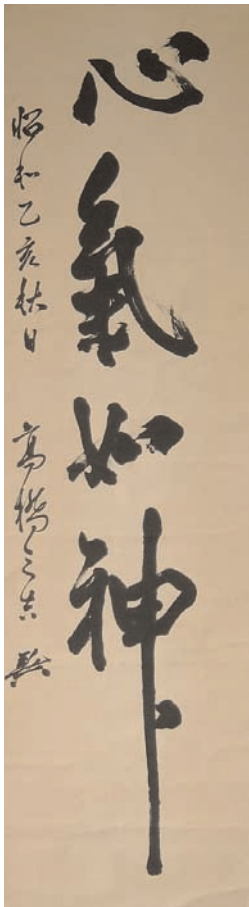 心氣如神
昭和乙亥秋日 高橋三吉